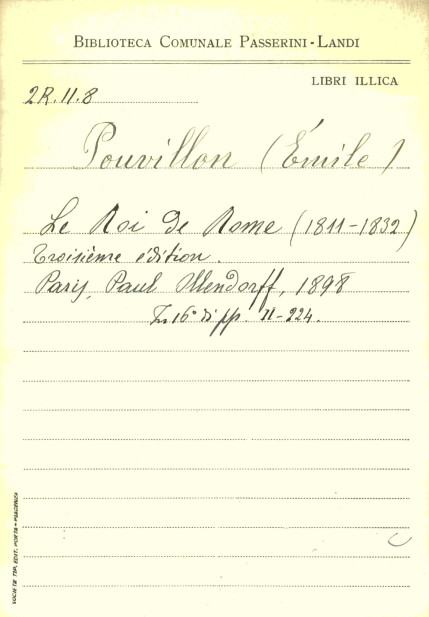 BIBLIOTECA COMUNALE PASSERINI-LANDI
LIBRI ILLICA
2R.11.8
Pouvillon (Émile)
Le Roi de Rome (1811-1832)
Troisième édition.
Paris, Paul Ollendorff, 1898
In 16° di pp. II-224.
SOCIETÀ TIP. EDIT. PORTA - PIACENZA